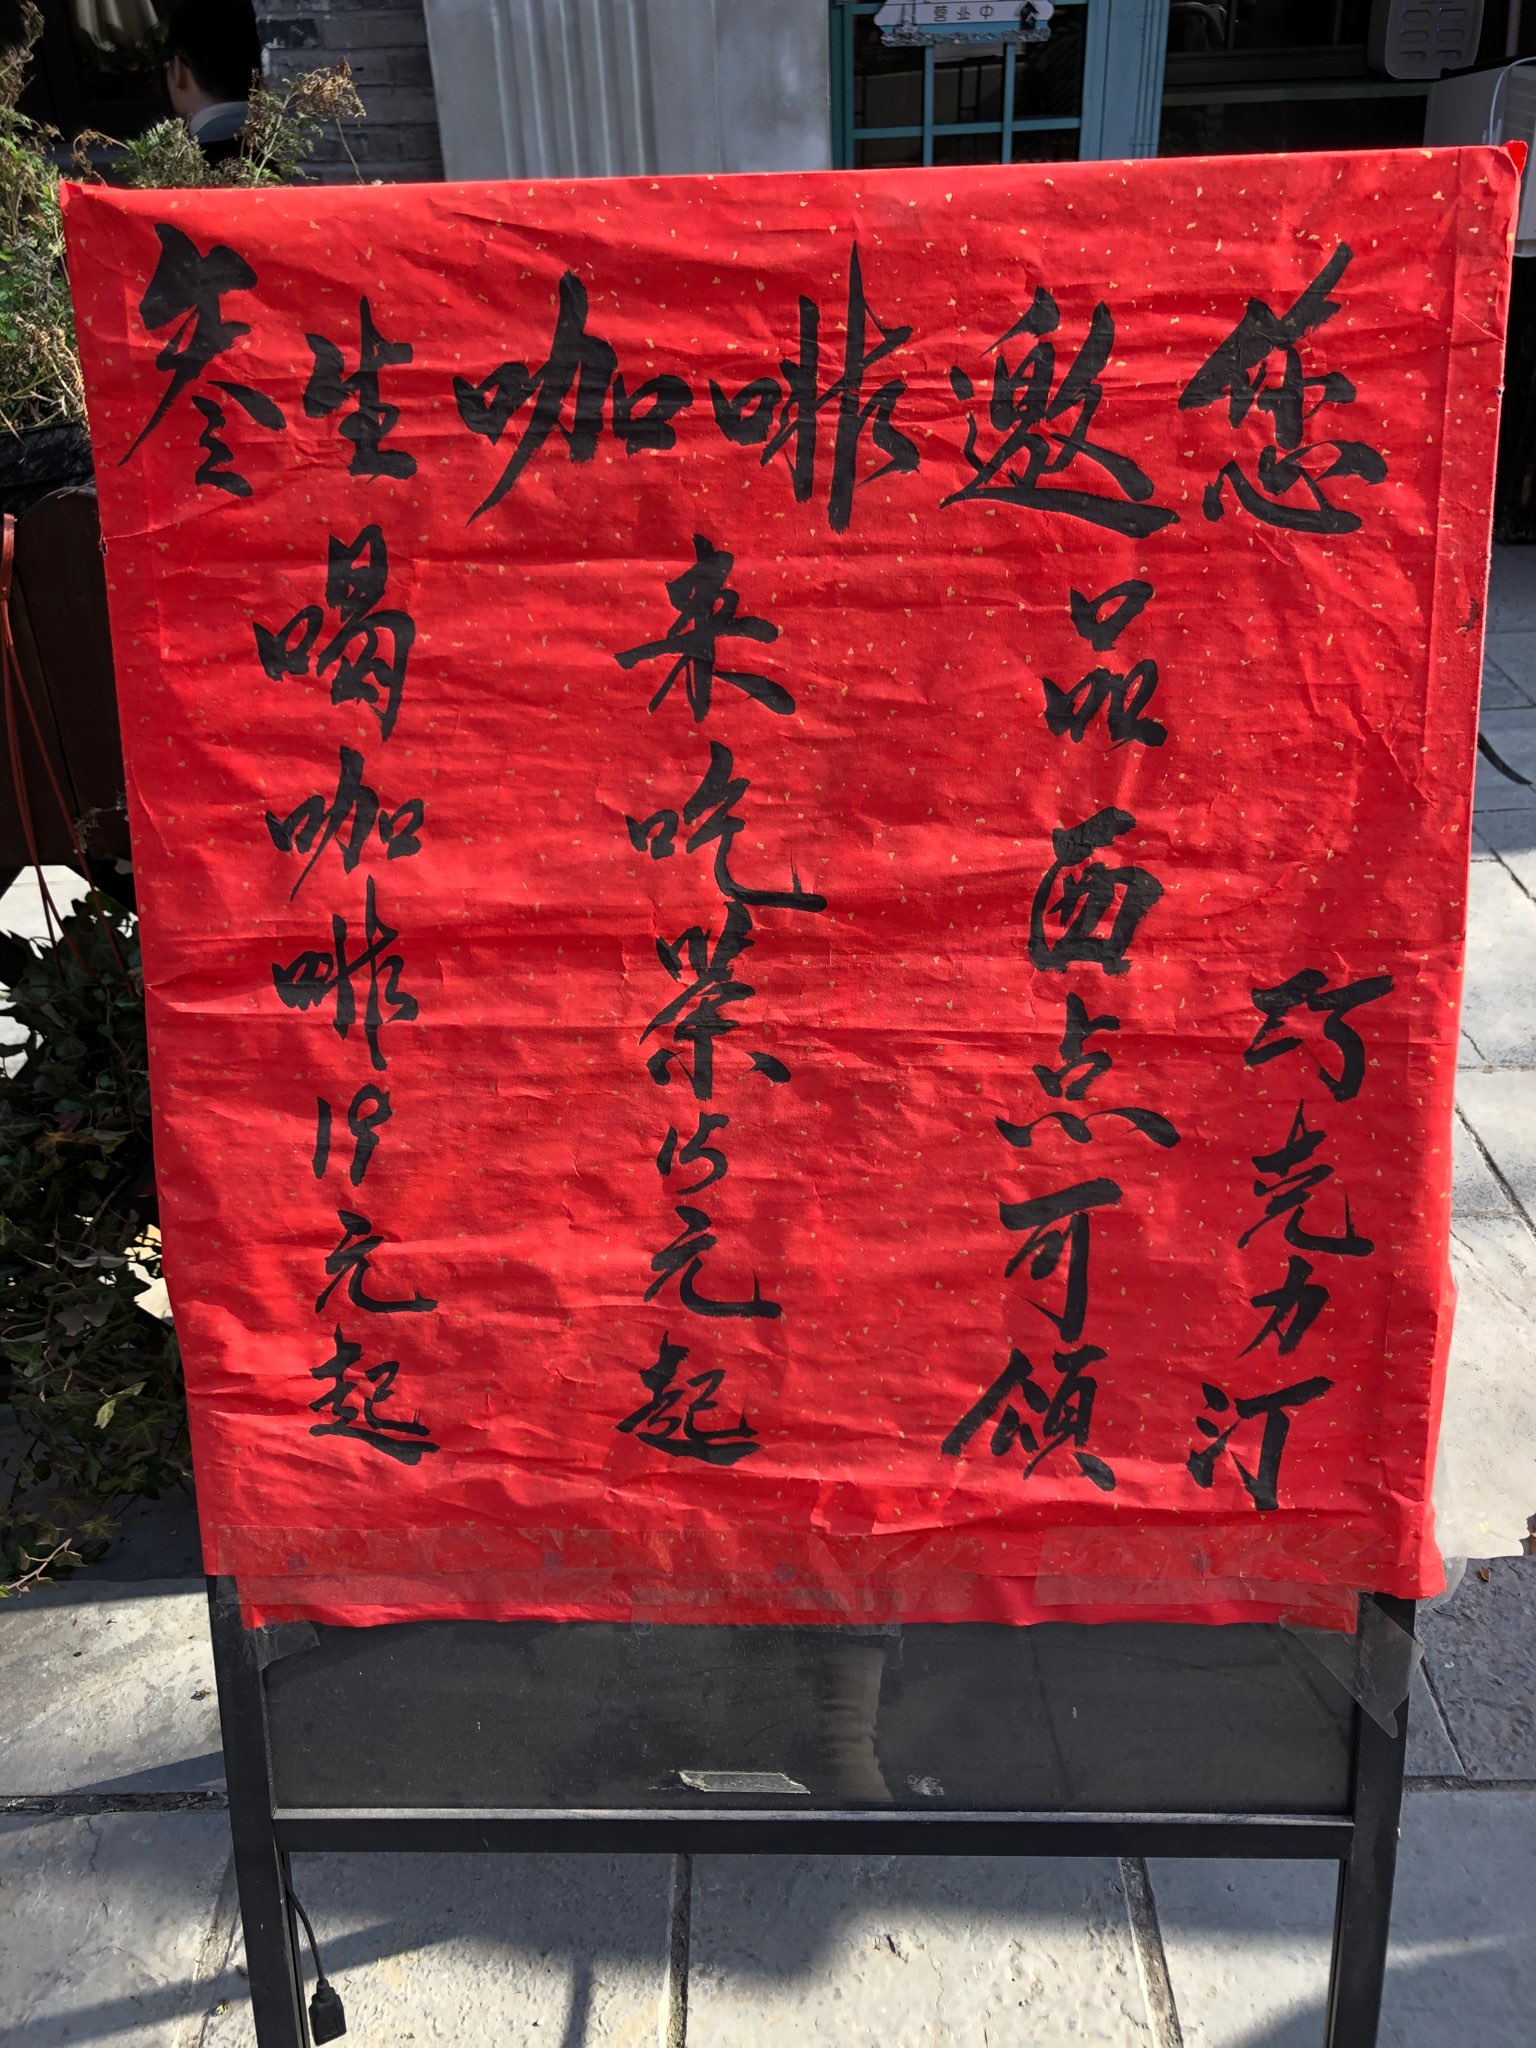 营业中
叁生咖啡邀您
喝咖啡19元起
来吃茶15元起
品西点可颂
巧克力汀